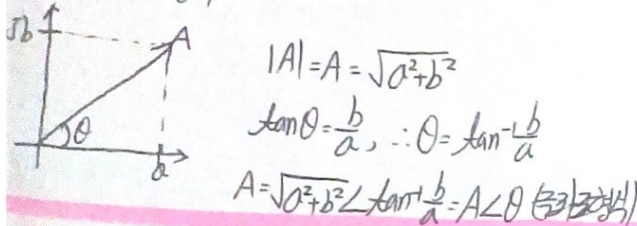 jb
A
θ
a
|A| = A = √a²+b²
tanθ = b/a, ∴ θ = tan⁻¹ b/a
A = √a²+b² ∠ tan⁻¹ b/a = A∠θ